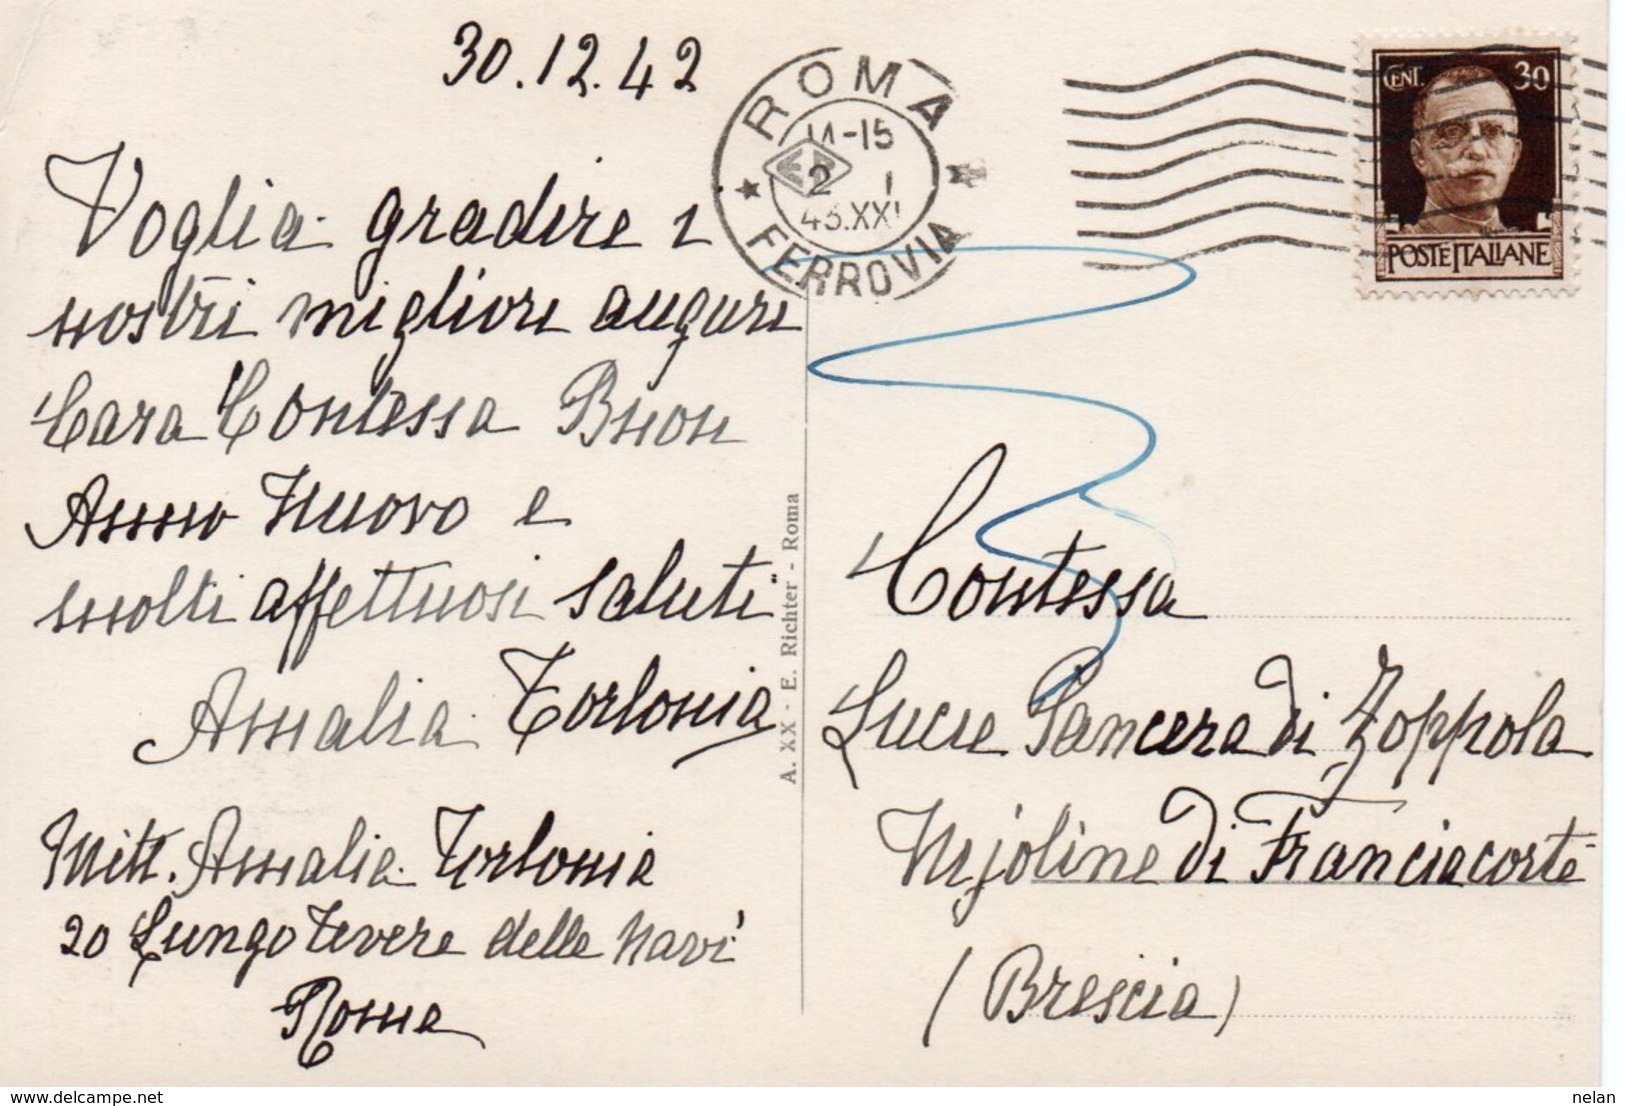 30.12.42
Voglia gradire i
nostri migliori auguri
Cara Contessa Buon
Anno Nuovo e
molti affettuosi saluti
Amalia Torlonia
Mitt. Amalia Torlonia
20 Lungo Tevere delle Navi
Roma
A. XX - E. Richter - Roma
ROMA
14-15
2 I
43.XXI
FERROVIA
CENT. 30
POSTE ITALIANE
Contessa
Lucie Panciera di Zoppola
di Franciacorta
(Brescia)
delcampe.net
nelan